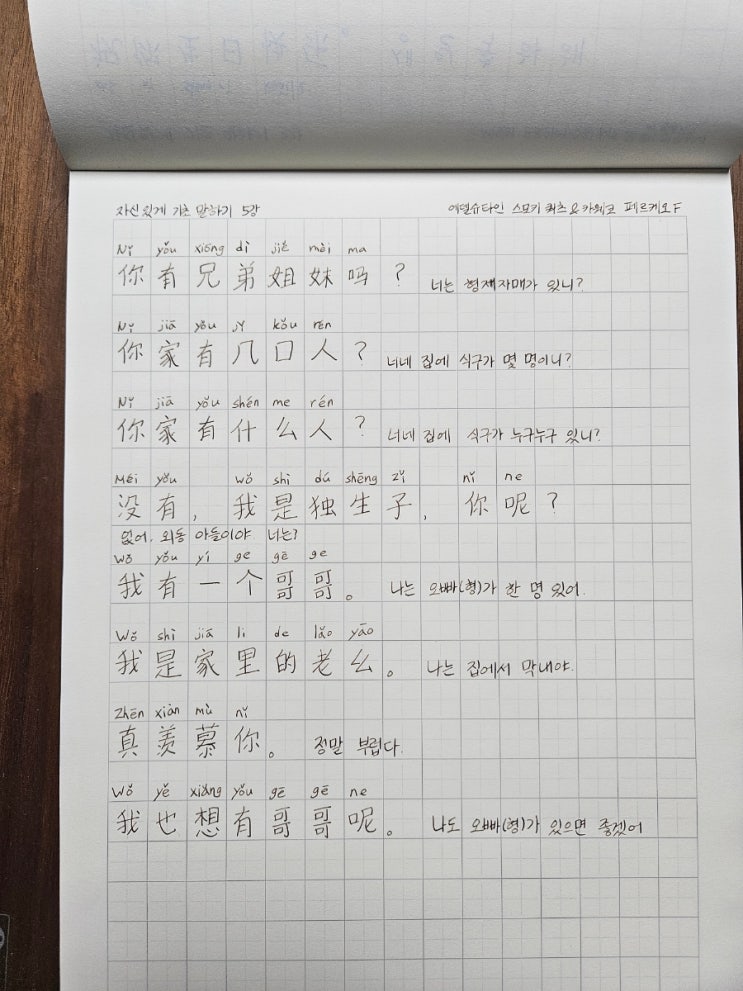 자신있게 기초 말하기 5강 에델슈타인 스모키 쿼츠 & 카웨코 페르케오 F
Nǐ yǒu xiōng dì jiě mèi ma
你有兄弟姐妹吗? 너는 형제자매가 있니?
Nǐ jiā yǒu jǐ kǒu rén
你家有几口人? 너네 집에 식구가 몇 명이니?
Nǐ jiā yǒu shén me rén
你家有什么人? 너네 집에 식구가 누구누구 있니?
Méi yǒu wǒ shì dú shēng zǐ nǐ ne
没有, 我是独生子, 你呢?
없어. 외동 아들이야 너는?
Wǒ yǒu yí ge gē ge
我有一个哥哥。 나는 오빠(형)가 한 명 있어.
Wǒ shì jiā li de lǎo yāo
我是家里的老幺。 나는 집에서 막내야.
Zhēn xiàn mù nǐ
真羡慕你。 정말 부럽다.
Wǒ yě xiǎng yǒu gē gē ne
我也想有哥哥呢。 나도 오빠(형)가 있으면 좋겠어